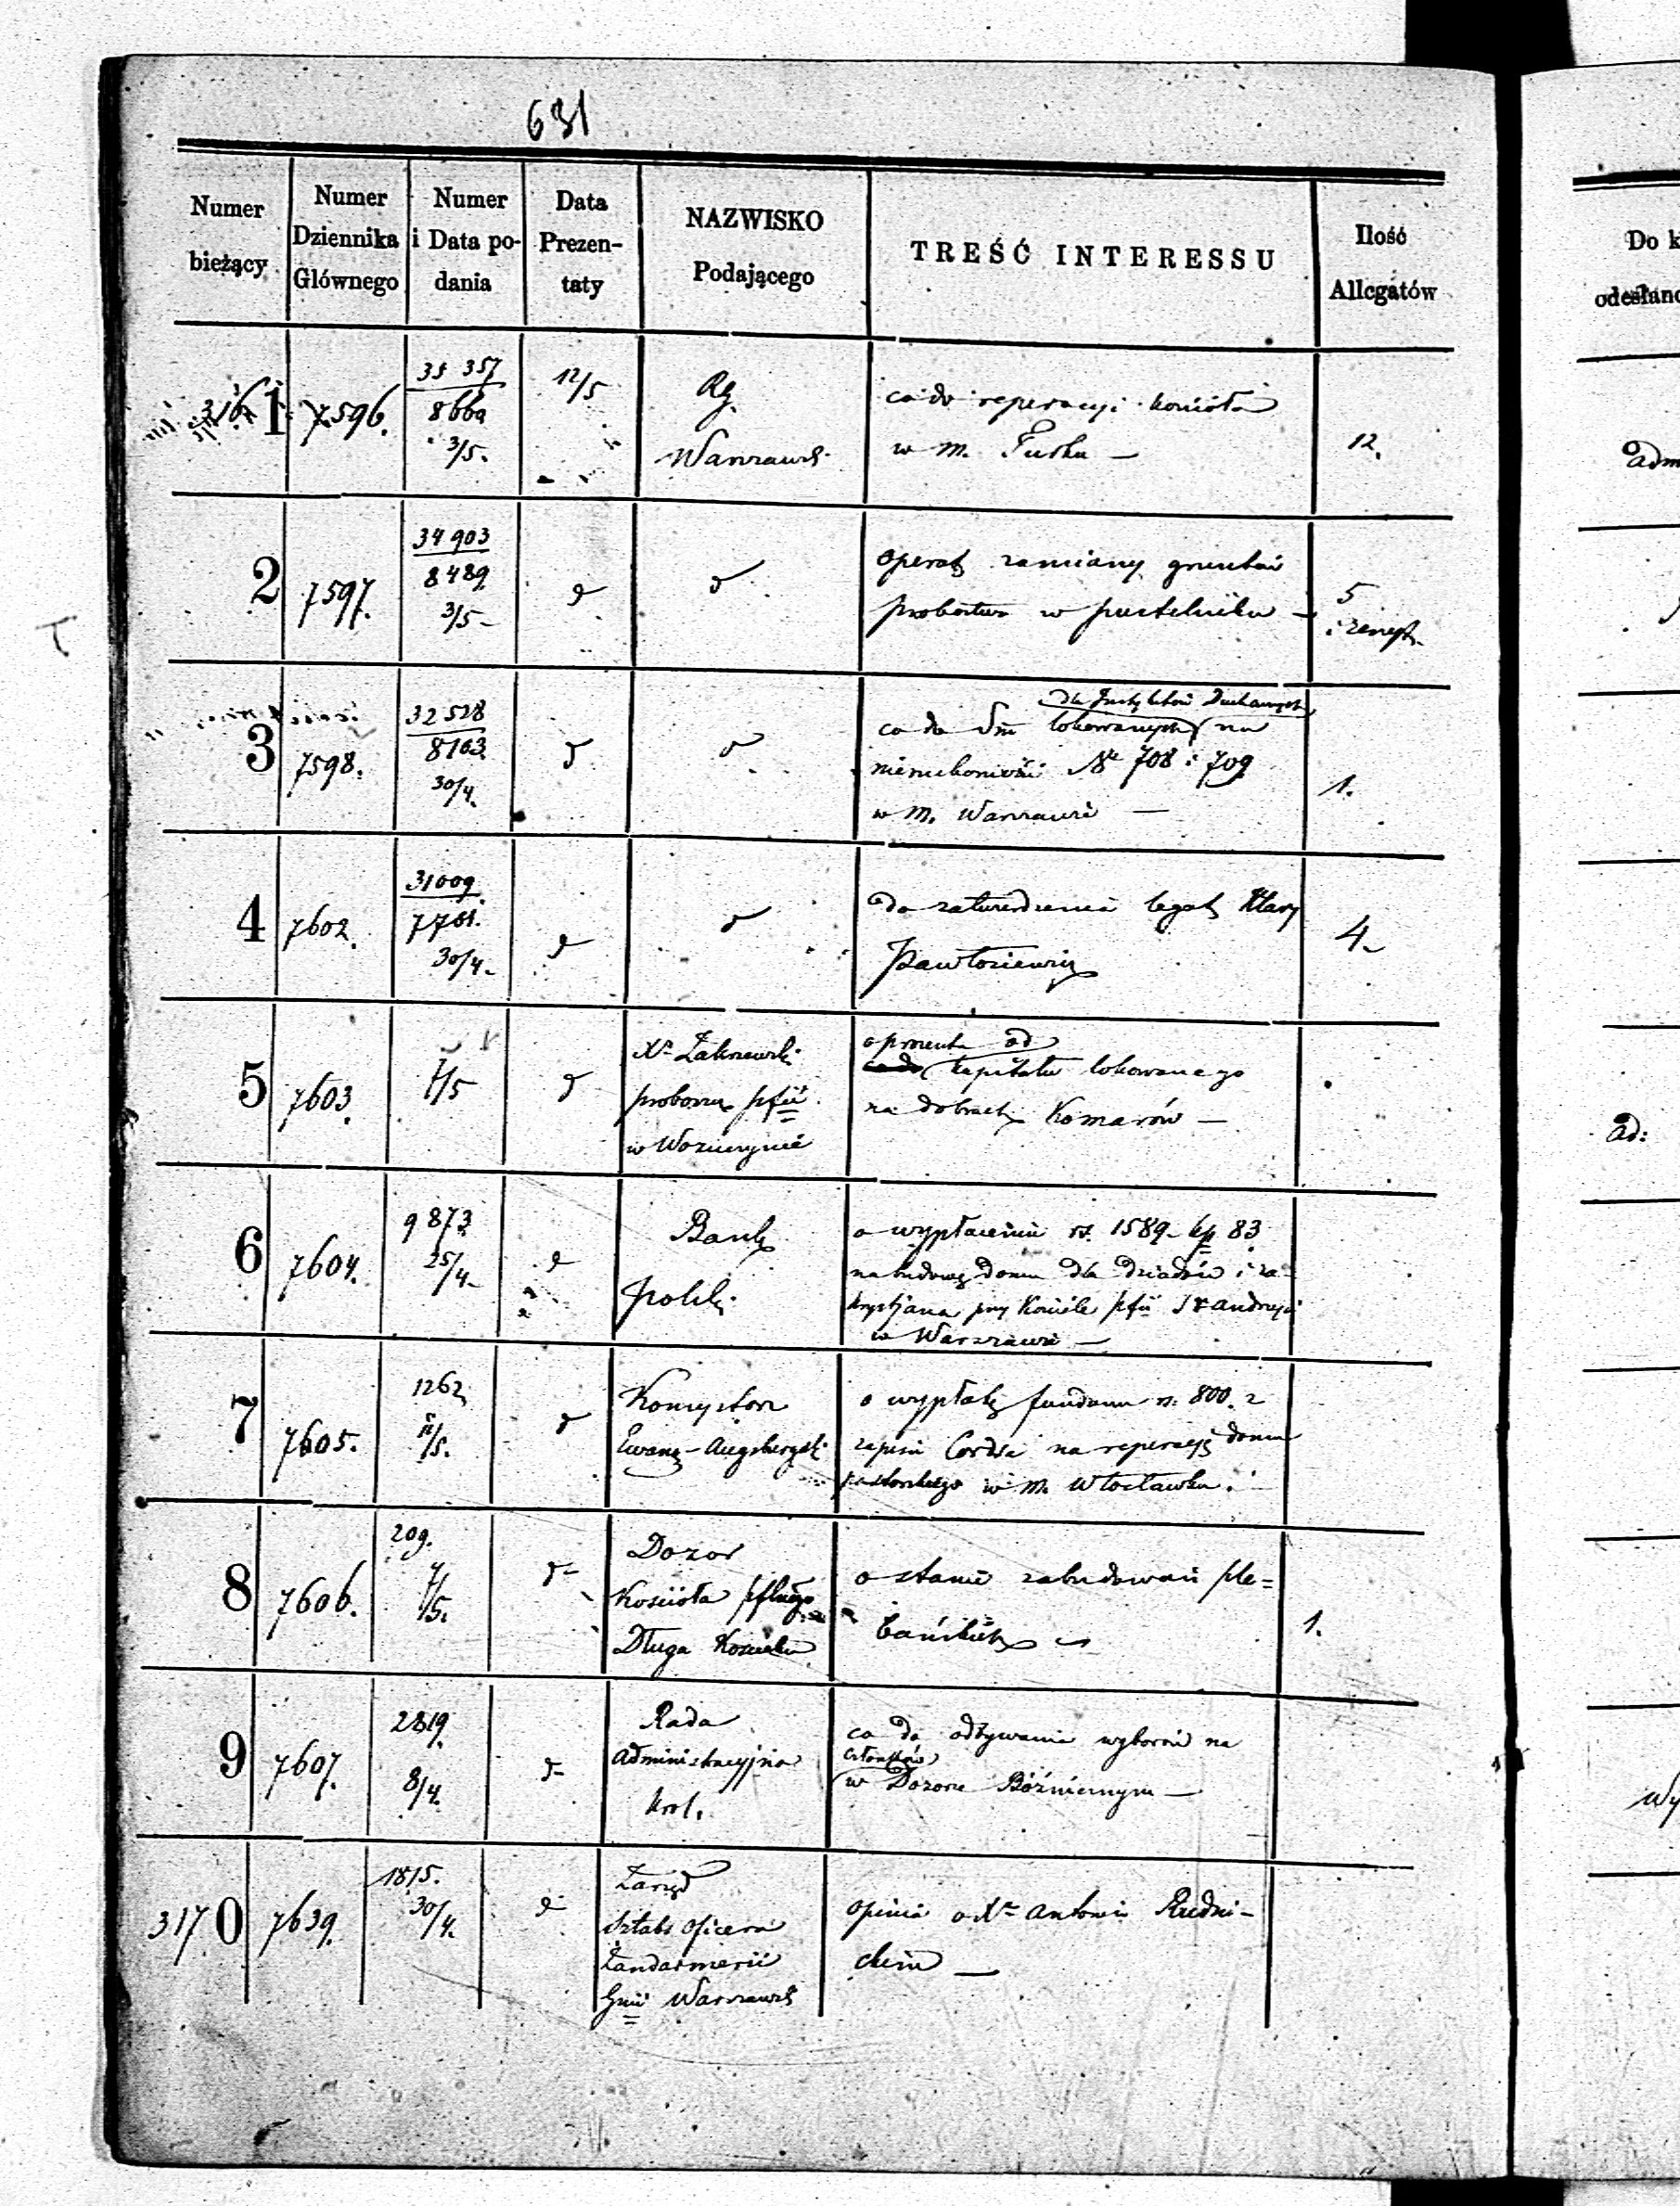 631
Numer bieżący
Numer Dziennika Głównego
Numer i Data podania
Data Prezentaty
NAZWISKO Podającego
TREŚĆ INTERESSU
Ilość Allegatów
Do k
odesłano
316 1
7596.
35 357
8660
3/5.
12/5
Rg.
Warszaws.
co do reperacyi kościoła
w m. Turku —
12.
adm
2
7597.
34 903
8489
3/5 -
d
d
operat zamiany gruntów
probostwa w pustelniku —
5
3
7598.
32 528
8103
30/4.
d
d
dla Instytutów Duchownych
co do Sm lokowanych na
nieruchomości No 708 i 709
w m. Warszawie —
1.
4
7602.
31009.
7761.
30/4 -
d
d
do zatwierdzenia legat Klary
Pawłosiewicz
4 -
5
7603.
7/5
d
Xs Zakrzewski
proboszcz pfii
w Woziczynie
o procenta od
co do kapitału lokowanego
na dobrach Komarów —
ad:
6
7604.
9873
25/4 -
d
Bank
Polski
o wypłacenie rs. 1589 - kp 83
na budowę domu dla dziadów i za-
krystjana przy Kościele pfii S Andrzeja
w Warszawie —
7
7605.
1262
d
Konsystorz
Ewang - Augsburgski
o wypłatę funduszu rs. 800. z
zapisu Cordsa na reperacyę domu
pastorskiego w m. Włocławku.
8
7606.
209.
7/5.
d -
Dozór
Kościoła pflnego
Długa Kościelna
o stanie zabudowań ple=
bańskich
1.
9
7607.
2819.
8/4.
d -
Rada
Administracyjna
Krol.
co do odbywania wyborów na
członków
w Dozorze Bóźniczym —
Wy
317 0
7639.
1815.
30/4.
d
Zarząd
Sztabs Oficera
Żandarmerii
Gnii Warszaws
Opinia o Xs Antonim Rudni-
ckim —